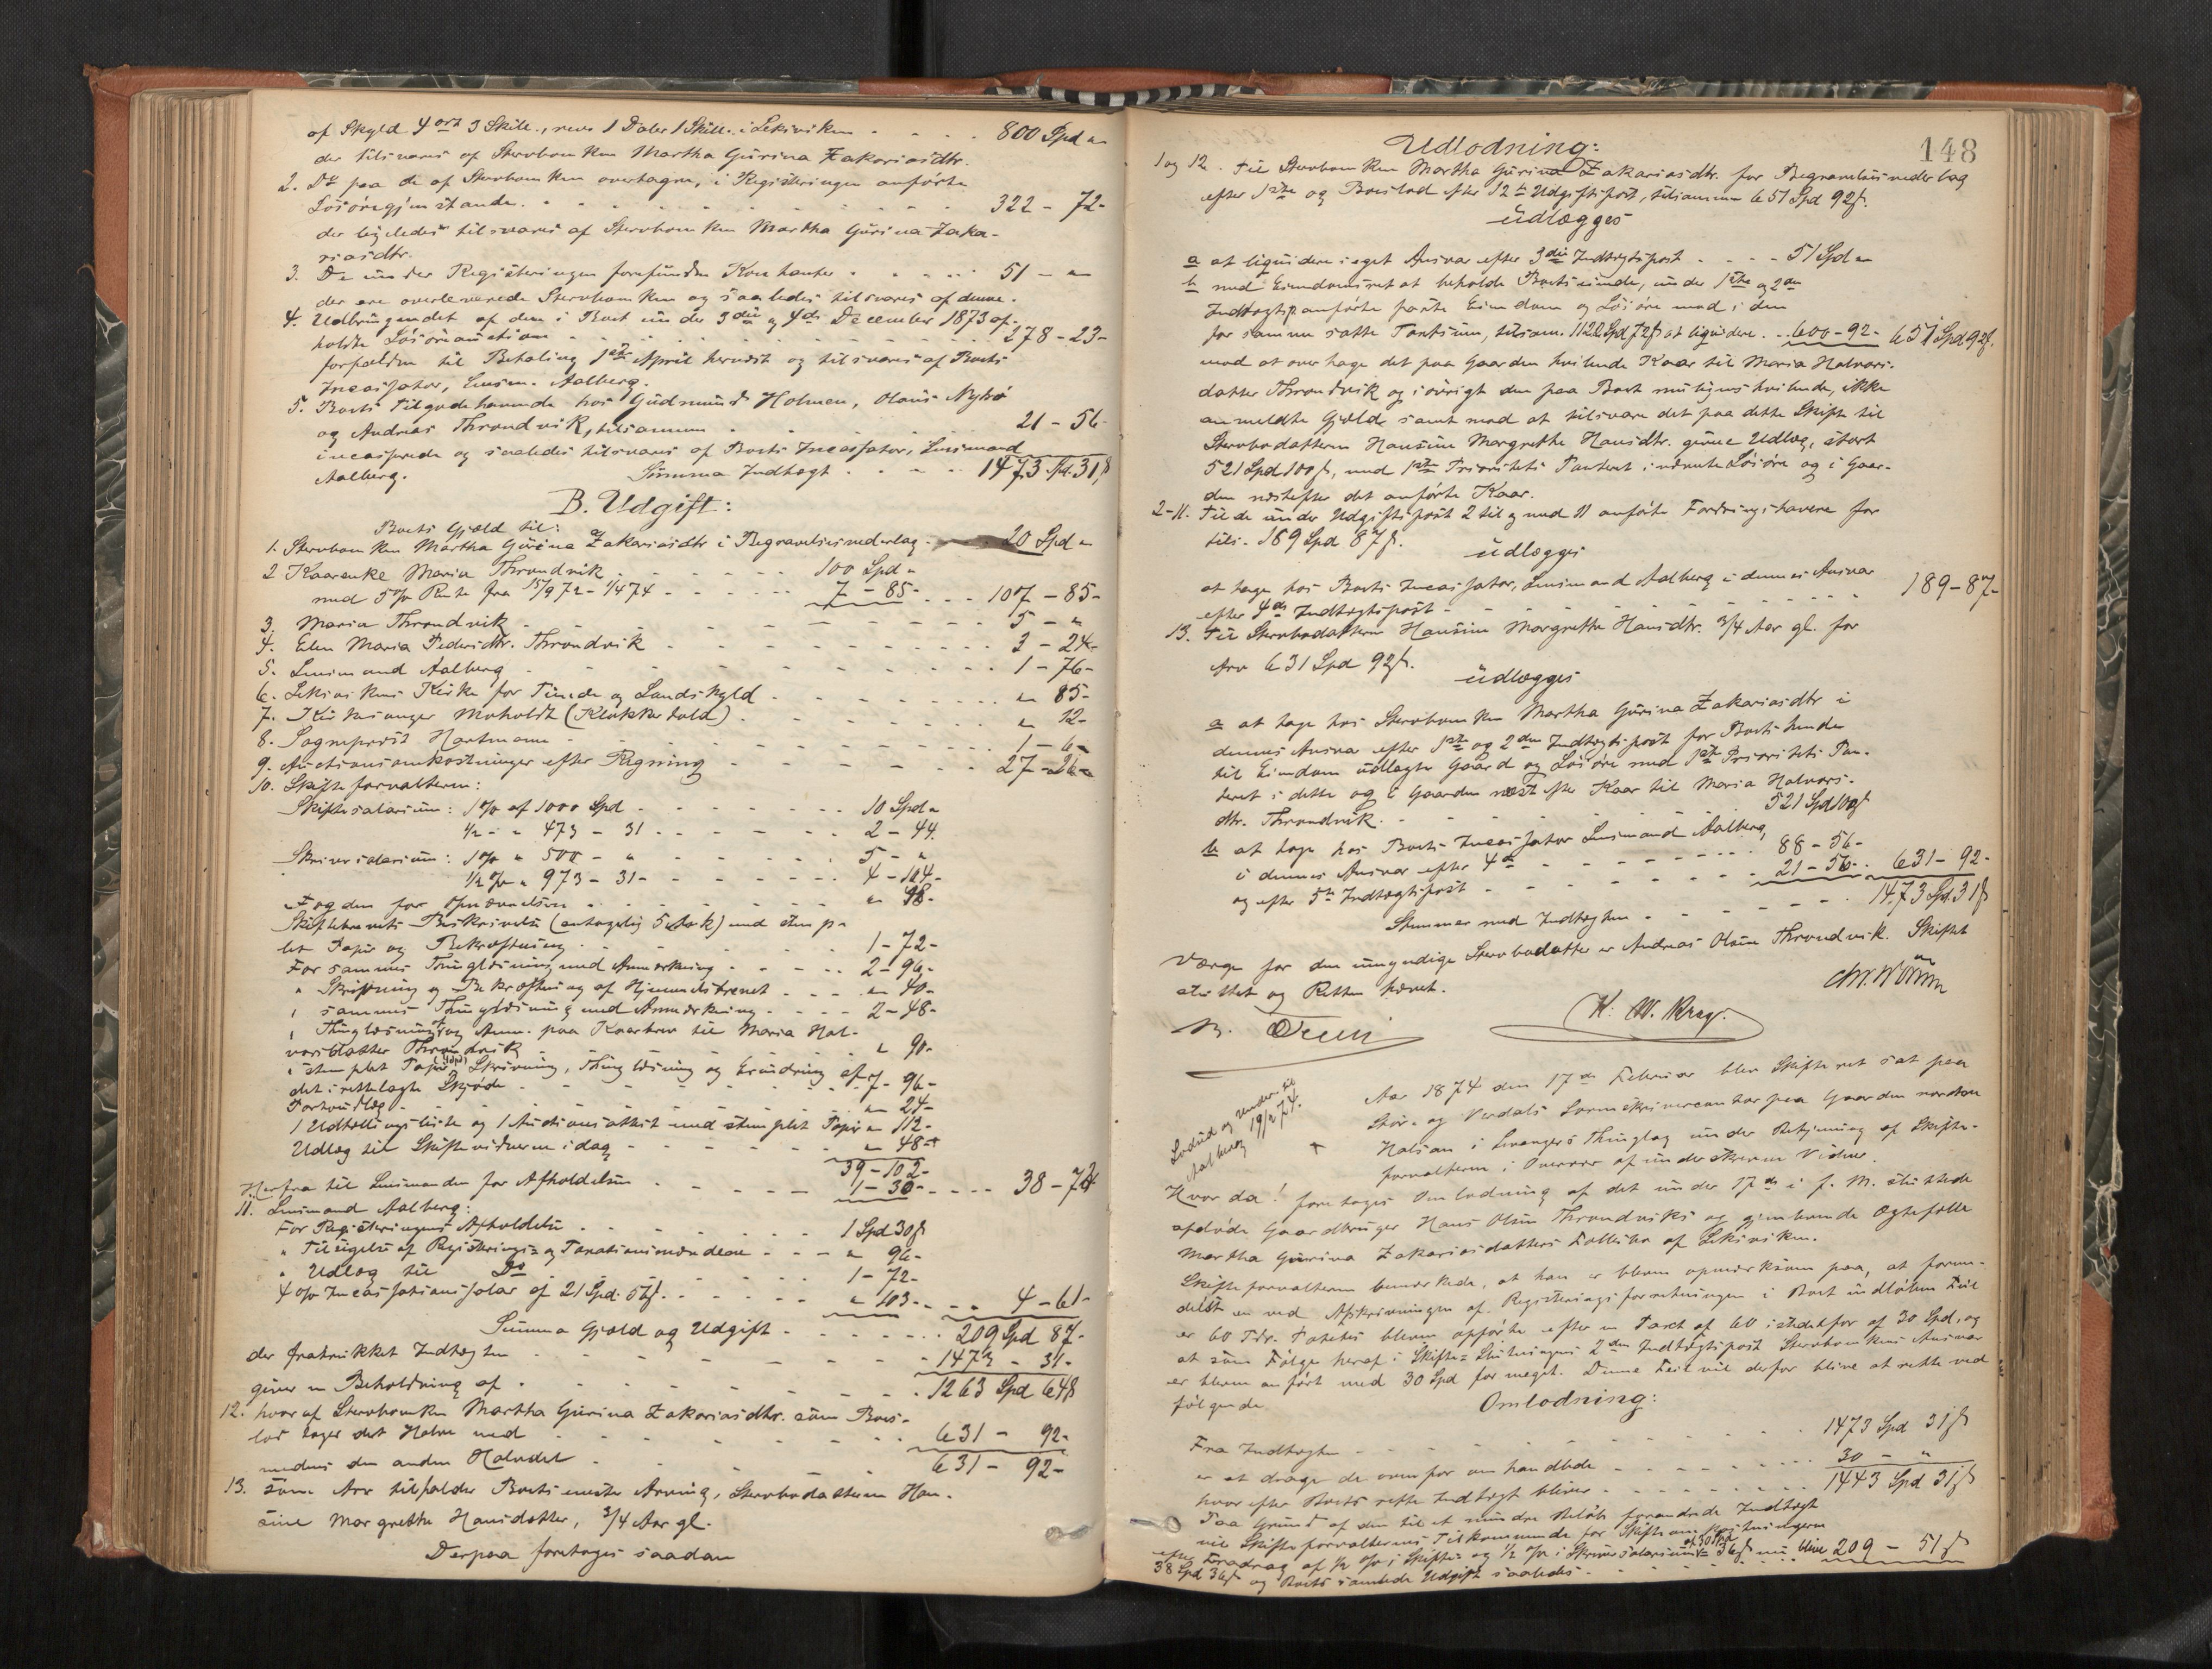 af Skyld 4 ort 3 Skill., revs 1 Daler 1 Skill. i Leksviken . . . . 800 Spd "
der tilsvares af Stervboenken Martha Gurina Zakariasdtr.
2. Do paa de af Stervboenken overtagne, i Registeringen anførte
Løsøregjenstande . . . . 322 - 72 -
der ligeledes tilsvares af Stervboenken Martha Gurina Zaka-
riasdtr.
3. De under Registeringen forefundne Kontanter . . . . 51 - "
der ere overleverede Stervboenken og saaledes tilsvares af denne.
4. Udbringendet af den i Boet under 3die og 4de December 1873 af-
holdte Løsøreauction . . . . 278 - 23 -
forfalden til Betaling 1ste April herværende og tilsvares af Boets
Incassator, Lensm. Aalberg.
5. Boets Tilgodehavende hos Gudmund Holmen, Olaus Nybø
og Andreas Throndvik, tilsammen . . . . 21 - 56 -
incasserede og saaledes tilsvares af Boets Incassator, Lensmand
Aalberg. Summa Indtægt . . . . 1473 Spd. 31 ß
B. Udgift:
Boets Gjæld til:
1. Stervboenken Martha Gurina Zakariasdtr i Begravelsesvederlag . 20 Spd "
2 Kaarenke Maria Throndvik . . . . 100 Spd "
med 5 % Rente fra 15/9 72 - 1/4 74 . . . . 7 - 85 - . . . 107 - 85 -
3. Maria Throndvik . . . . 5 - "
4. Elen Maria Pedersdtr. Throndvik . . . . 3 - 24 -
5. Lensmand Aalberg . . . . 1 - 76 -
6. Leksvikens Kirke for Tiende og Landskyld . . . . " 85 -
7. Kirkesanger Moholdt (Klokkertold) . . . . " 12 -
8. Sogneprest Hartmann . . . . 1 - 6 -
9. Auctionsomkostninger efter Regning . . . . 27 - 26 -
10. Skifteforvalteren:
Skiftesalarium: 1 % af 1000 Spd . . . . 10 Spd "
1/2 - " 473 - 31 . . . . 2 - 44
Skriversalarium: 1 % " 500 - " . . . . 5 - "
1/2 % " 973 - 31 - . . . . 4 - 104 -
Fogden for Opnævnelsen . . . . " 48 -
Skiftebrevets Beskrivelse (antagelig 5 Ark) med stemp-
let Papir og Bekræftning . . . . 1 - 72 -
For sammes Thinglæsning med Anmerkning . . . . 2 - 96 -
" Skrivning og Bekræftning af Hjemmelsbrevet . . . . " 40 -
" sammes Thinglæsning med Anmerkning . . . . 2 - 48 -
" Thinglæsning og Anm. paa Kaarbrev til Maria Hal-
vorsdatter Throndvik . . . . " 90 -
" stemplet Papir, Skrivning, Thinglæsning og Grundring af
det irettelagte Skjøde . . . . 7 - 96 -
Portoudlæg . . . . " 24 -
1 Udtællingsliste og 1 Auctionsattest med stemplet Papir " 112 -
Udlæg til Skiftevidnerne idag . . . . " 48 -
39 - 102 -
Herfra til Lensmanden for Afholdelsen . . . . 1 - 30 - . . . . 38 - 72
11. Lensmand Aalberg:
For Registeringens Afholdelse . . . . 1 Spd 30 ß
" Tilsigelse af Registerings- og Taxationsmændene . . . . " 96 -
" Udlæg til Do . . . . 1 - 72 -
4 % Incassationssalær af 21 Spd. 56 ß . . . . " 103 - . . 4 - 61 -
Summa Gjæld og Udgift . . . . 209 Spd 87 -
der fratrukket Indtægten . . . . 1473 - 31 -
giver en Beholdning af . . . . 1263 Spd 64 ß
12. hvoraf Stervboenken Martha Gurina Zakariasdtr. som Boes-
lod tager det Halve med . . . . 631 - 92 -
medens den anden Halvdel . . . . 631 - 92 -
13. som Arv tilfalder Boets eneste Arving, Stervbodatteren Han-
sine Margrethe Hansdatter, 3/4 Aar gl.
Derpaa foretoges saadan
148
Udlodning:
1 og 12. Til Stervboenken Martha Gurina Zakariasdtr. for Begravelsesvederlag
efter 1ste og Boeslod efter 12te Udgiftspost, tilsammen 651 Spd 92 ß.
udlægges
a at liqvidere i eget Ansvar efter 3die Indtægtspost . . . . 51 Spd "
b med Eiendomsret at beholde Boets iende, under 1ste og 2den
Indtægtspost anførte faste Eiendom og Løsøre mod i den
for samme satte Taxtsum, tilsam. 1122 Spd 72 ß at liqvidere . . 600 - 92 - 651 Spd 92 ß.
mod at overtage det paa Gaarden hvilende Kaar til Maria Halvors-
datter Throndvik og iøvrigt den paa Boet muligens hvilende, ikke
anmeldte Gjæld samt mod at tilsvare det paa dette Skifte til
Stervbodatteren Hansine Margrethe Hansdtr. givne Udlæg, stort
521 Spd 100 ß, med 1ste Prioritets Panteret i nævnte Løsøre og i Gaar-
den næstefter det anførte Kaar.
2-11. Til de under Udgiftspost 2 til og med 11 anførte Fordringshavere for
tils. 189 Spd 87 ß.
udlægges
at tage hos Boets Incassator, Lensmand Aalberg i dennes Ansvar
efter 4de Indtægtspost . . . . 189 - 87 -
13. Til Stervbodatteren Hansine Margrethe Hansdtr. 3/4 Aar gl. for
Arv 631 Spd 92 ß.
udlægges
a at tage hos Stervboenken Martha Gurina Zakariasdtr i
dennes Ansvar efter 1ste og 2den Indtægtspost for Boets hende
til Eiendom udlagte Gaard og Løsøre med 1ste Prioritets Pan-
teret i dette og i Gaarden næst efter Kaar til Maria Halvors-
dtr. Throndvik . . . . 521 Spd 100 ß
b at tage hos Boets Incassator Lensmand Aalberg,
i dennes Ansvar efter 4de . . . . 88 - 56 -
og efter 5te Indtægtspost . . . . 21 - 56 - . . 631 - 92 -
Stemmer med Indtægten . . . . 1473 Spd. 31 ß
Værge for den umyndige Stervbodatter er Andreas Olsen Throndvik. Skiftet
sluttet og Retten hævet.
Chr. Worm
K. M. Krag.
Aar 1874 den 17de Februar blev Skifteret sat paa
Stør- og Verdals Sorenskrivercontor paa Gaarden nordre
Halsan i Levangers Thinglag under Betjening af Skifte-
forvalteren i Overvær af underskrevne Vidner.
Lodsed. og
Aalberg 19/2 74.
Hvor da! foretoges Omlodning af det under 17de i f. M. sluttede
afdøde Gaardbruger Hans Olsen Throndviks og gjenlevende Ægtefælle
Martha Gurina Zakariasdatters Fællesbo af Leksviken.
Skifteforvalteren bemærkede, at han er bleven opmærksom paa, at formo-
delst en ved Afskrivningen af Registeringsforretningen i Boet indløben Feil
er 60 Tdr. Potetes bleven opførte efter en Taxt af 60 istedetfor af 30 Spd, og
at som Følge heraf i Skifte-Slutningens 2den Indtægtspost Stervboenkens Ansvar
er bleven anført med 30 Spd for meget. Denne Feil vil derfor blive at rette ved
følgende
Omlodning:
Fra Indtægten . . . . 1473 Spd 31 ß
er at drage de ovenfor omhandlede . . . . 30 - "
hvorefter Boets rette Indtægt bliver . . . . 1443 Spd 31 ß
Paa Grund af den til et mindre Beløb forandrede Indtægt
vil Skifteforvalterens Tilkommende for Skifteomkostningerne
efter Fradrag af 1/2 % i Skifte- og 1/2 % i Skriversalarium af 30 Spd = 36 ß nu blive
38 Spd 36 ß og Boets samlede Udgift saaledes . . . . 209 - 51 ß